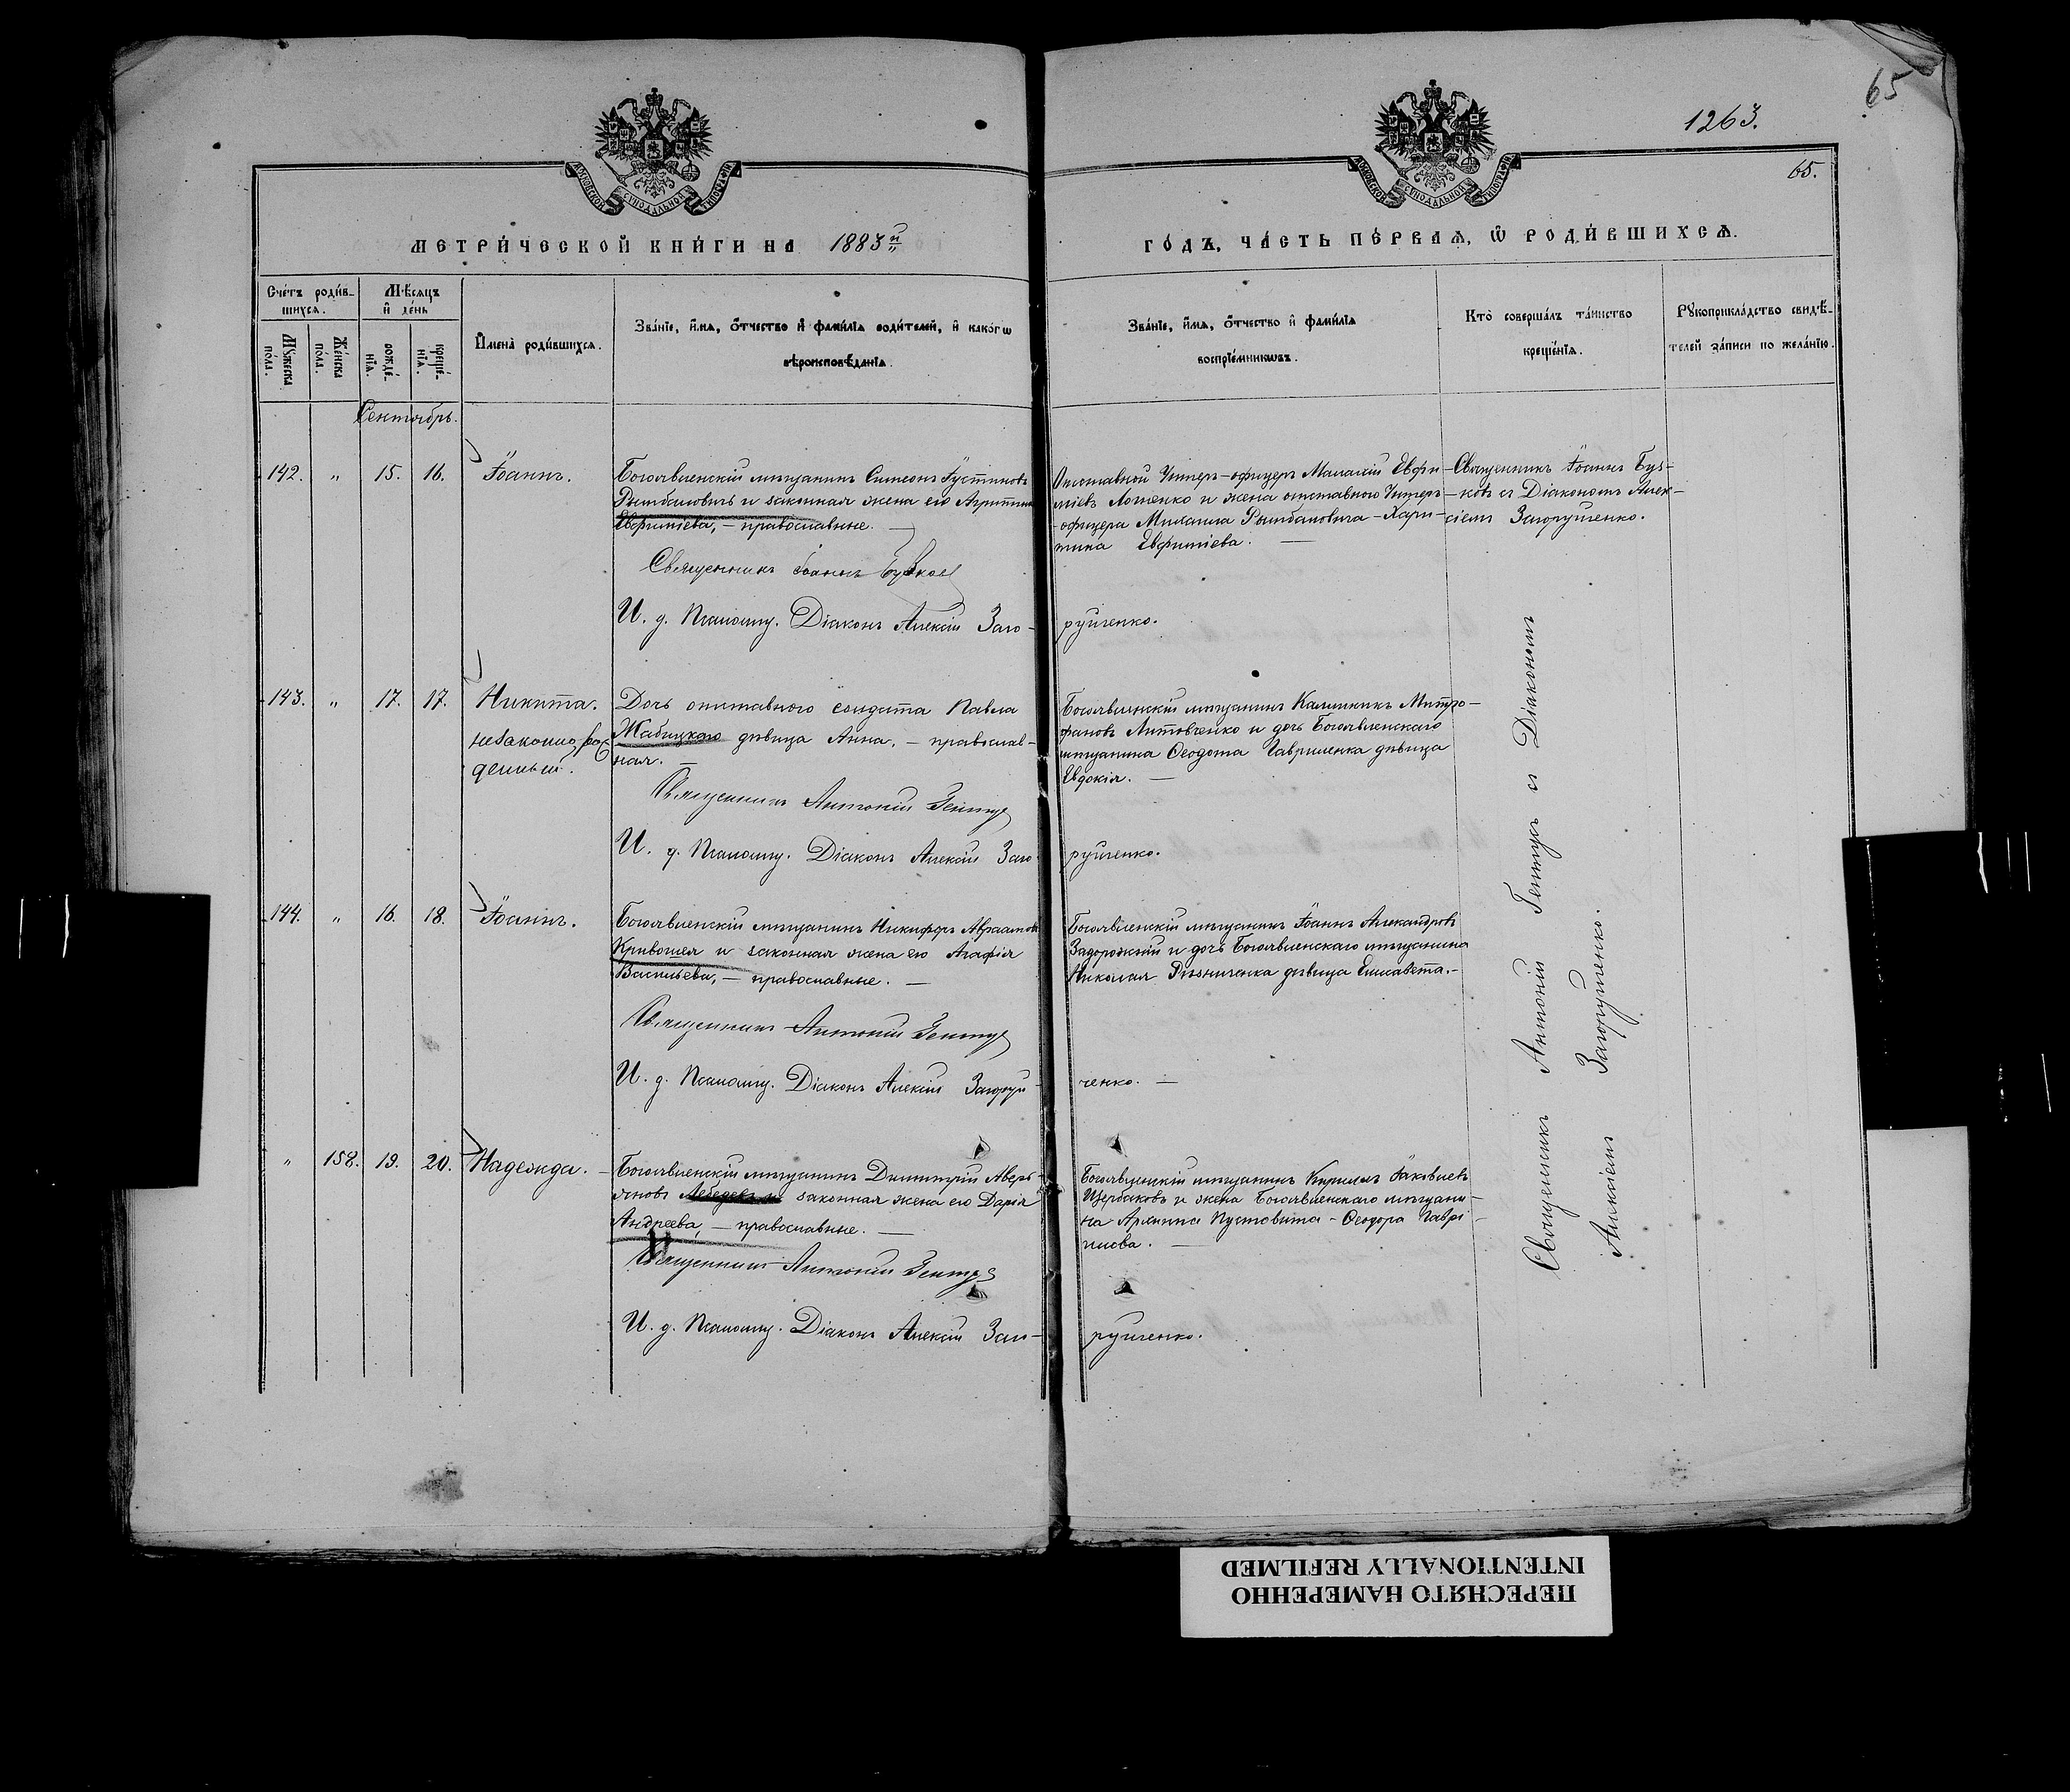 65
1263.
65.
МОСКОВСКОЙ СУНОДАЛЬНОЙ ТИПОГРАФІИ
МОСКОВСКОЙ СУНОДАЛЬНОЙ ТИПОГРАФІИ
МЕТРИ́ЧЕСКОЙ КНИ́ГИ НА 1883й
ГО́ДЪ, ЧА́СТЬ ПЕ́РВАѦ, Ѡ҆ РОДИ́ВШИХСѦ.
Сче́тъ роди́в-
шихсѧ.
Мꙋ́жеска по́ла.
Же́нска по́ла.
Мѣ́сѧцъ
и҆ де́нь
рожде́-
нїѧ.
креще́-
нїѧ.
И҆мена̀ роди́вшихсѧ.
Зва́нїе, и҆́мѧ, ѻ҆́тчество и҆ фами́лїѧ роди́телей, и҆ како́гѡ
вѣроисповѣ́данїѧ.
Зва́нїе, и҆́мѧ, ѻ҆́тчество и҆ фами́лїѧ
воспрїе́мникѡвъ.
Кто̀ соверша́лъ та́инство
креще́нїѧ.
Рꙋкоприкла́дство свидѣ́-
телей за́писи по жела́нїю.
Сентябрь.
142. " 15. 16. Іоаннъ.
Богоявленскій мѣщанинъ Симеонъ Іустиновъ
Рымбаловичъ и законная жена его Агриппина
Евфиміева, — православные. —
Священникъ Іоаннъ Бузковъ
И. д. Псаломщ. Діаконъ Алексій Заго-
руйченко.
Отставной Унтеръ-офицеръ Малахій Евфи-
міевъ Лотенко и жена отставного Унтеръ-
-офицера Михаила Рымбаловича — Хари-
тина Евфиміева. —
Священникъ Іоаннъ Буз-
ковъ съ Діакономъ Алек-
сіемъ Загоруйченко.
143. " 17. 17. Никита.
незаконнорож
денный.
Дочь отставного солдата Павла
Жабицкаго дѣвица Анна, — православ-
ная. —
Священникъ Антоній Гентуз
И. д. Псаломщ. Діаконъ Алексій Заго
руйченко.
Богоявленскій мѣщанинъ Калинникъ Митро-
фановъ Литовченко и дочь Богоявленскаго
мѣщанина Ѳеодота Гавриленка дѣвица
Евдокія. —
144. " 16. 18. Іоаннъ.
Богоявленскій мѣщанинъ Никифоръ Авраамовъ
Кривошея и законная жена его Агафія
Васильева, — православные. —
Священникъ Антоній
И. д. Псаломщ. Діаконъ Алексій Загоруй-
ченко. —
Богоявленскій мѣщанинъ Іоаннъ Александровъ
Задорожній и дочь Богоявленскаго мѣщанина
Николая Рѣзниченка дѣвица Елисавета. —
" 158. 19. 20. Надежда.
Богоявленскій мѣщанинъ Димитрій Аверь-
яновъ Лебедевъ и законная жена его Дарія
Андреева, — православные. —
Священникъ Антоній
И. д. Псаломщ. Діаконъ Алексій Заго-
руйченко.
Богоявленскій мѣщанинъ Кириллъ Іаковлевъ
Щербаковъ и жена Богоявленскаго мѣщани-
на Архиппа Пустовита — Ѳеодора Гаврі-
илова. —
Священникъ Антоній съ Діакономъ
Алексіемъ Загоруйченко.
ПЕРЕСНЯТО НАМЕРЕННО
INTENTIONALLY REFILMED